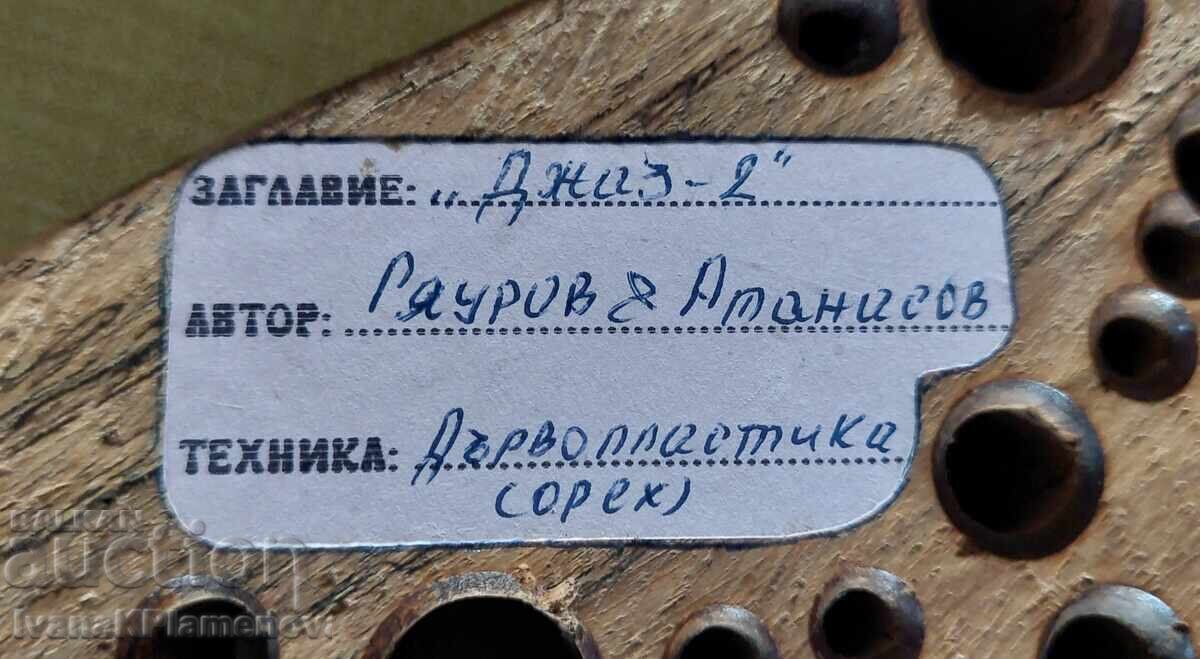 ЗАГЛАВИЕ: „Джаз-2“
АВТОР: Гяуров & Атанасов
ТЕХНИКА: Дървопластика
(орех)
BALKAN
auction
IvanaKPlamenov